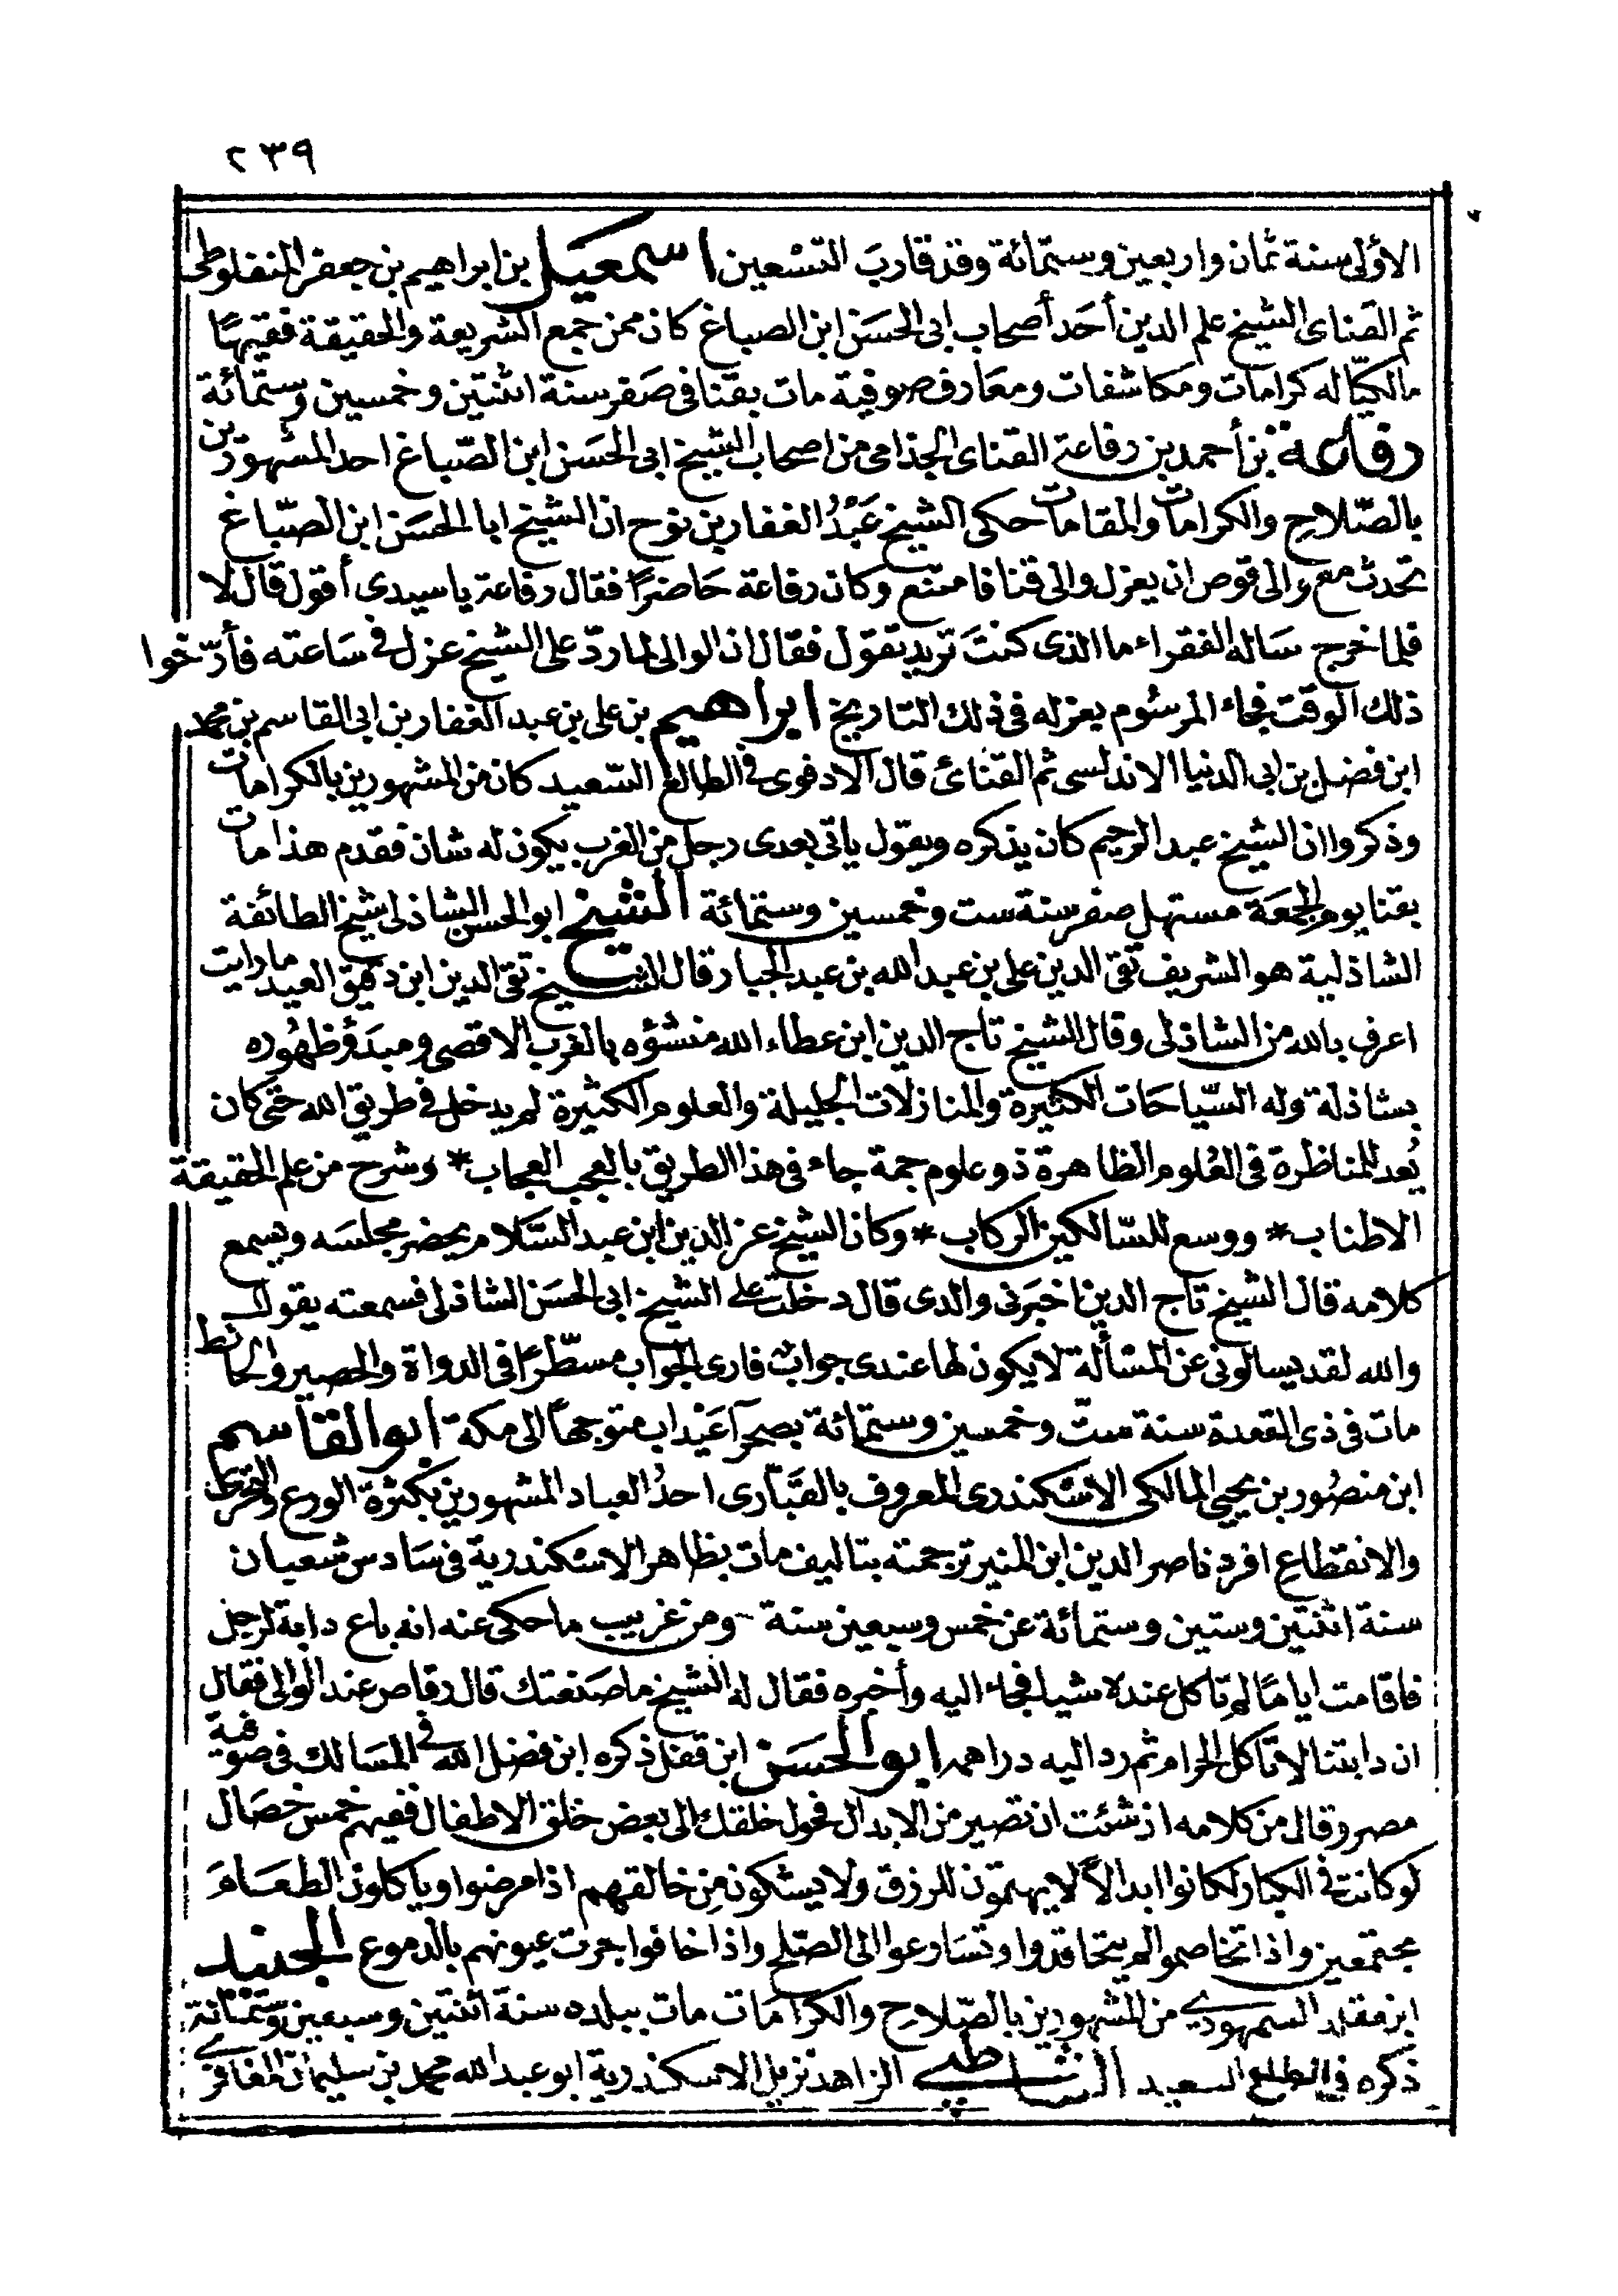 ٢٣٩
الأولى سنة ثمان واربعين وستمائة وقد قارب التسعين اسمعيل بن ابراهيم بن جعفر المنفلوطى
ثم القناى الشيخ علم الدين أحد أصحاب ابى الحسن ابن الصباغ كان ممن جمع الشريعة والحقيقة فقيهًا
مالكيّا له كرامات ومكاشفات ومعارف صوفية مات بقنا فى صفر سنة اثنتين وخمسين وستمائة
رفاعة بن أحمد بن رفاعة القناى الجذامى من اصحاب الشيخ ابى الحسن ابن الصّباغ احد المشهورين
بالصّلاح والكرامات والمقامات حكى الشيخ عَبْدُ الغفار بن نوح ان الشيخ ابا الحسن ابن الصبّاغ
تحدث مع والى قوص ان يعزل والى قنا فامتنع وكان رفاعة حاضرًا فقال رفاعة ياسيدى أقول قال لا
فلما خرج ساله الفقراء ما الذى كنت تريد تقول فقال ان الوالى لما ردّ على الشيخ عزل فى ساعته فأرّخوا
ذلك الوقت فجاء المرسوم بعزله فى ذلك التاريخ ابراهيم بن على بن عبد الغفار بن ابى القاسم بن محمد
ابن فضل بن ابى الدنيا الاندلسى ثم القنائ قال الادفوى فى الطالع السّعيد كان من المشهورين بالكرامات
وذكروا ان الشيخ عبد الرحيم كان يذكره ويقول ياتى بعدى رجل من الغرب يكون له شان فقدم هذا مات
بقنا يوم الجمعة مستهل صفر سنة ست وخمسين وستمائة الشيخ ابو الحسن الشاذلى شيخ الطائفة
الشاذلية هو الشريف تقى الدين على بن عبد الله بن عبد الجبار قال الشيخ تقى الدين ابن دقيق العيد ما رايت
اعرف بالله من الشاذلى وقال الشيخ تاج الدين ابن عطاء الله منشؤه بالغرب الاقصى ومبدؤ ظهُوره
بشاذلة وله السّياحات الكثيرة والمنازلات الجليلة والعلوم الكثيرة لم يدخل فى طريق الله حتى كان
يُعد للمناظرة فى العُلوم الظاهرة ذو علوم جمة جاء فى هذا الطريق بالعجب العجاب * وشرح من علم الحقيقة
الاطناب * ووسع للسّالكين الركاب * وكان الشيخ عز الدين ابن عبد السّلام يحضر مجلسه ويسمع
كلامه قال الشيخ تاج الدين اخبرنى والدى قال دخلت على الشيخ ابى الحسن الشاذلى فسمعته يقول
والله لقد يسالونى عن المسألة لا يكون لها عندى جواب فارى الجواب مسطّرًا فى الدواة والحصير والحائط
مات فى ذى القعدة سنة ستّ وخمسين وستمائة بصحرآ عَيْداب متوجهًا الى مكة ابو القاسم
ابن منصُور بن يحيى المالكى الاسكندرى المعروف بالقبّارى احدُ العباد المشهورين بكثرة الورع والتحرى
والانقطاع افرد ناصر الدين ابن المنير ترجمته بتاليف مات بظاهر الاسكندرية فى سادس شعبان
سنة اثنتين وستين وستمائة عن خمس وسبعين سنة ومن غريب ما حكى عنه انه باع دابة لرجل
فاقامت اياما لم تاكل عنده شيا فجاء اليه وأخبره فقال له الشيخ ما صنعتك قال رقاص عند الوالى فقال
ان دابتنا لا تأكل الحرام ثم رد اليه دراهمه ابو الحسن ابن قفل ذكره ابن فضل الله فى المسالك فى صوفية
مصر وقال من كلامه اذ شئت ان تصير من الابدال فحول خلقك الى بعض خلق الاطفال ففيهم خمس خصال
لو كانت فى الكبار لكانوا ابدالاً لا يهتمّون للرزق ولا يشكون مِن خالقهم اذا مرضوا وياكلون الطعام
مجتمعين واذا تخاصموا لم يتحاقدوا وتسارعوا الى الصّلح واذا خافوا جرت عيونهم بالدموع الجنيد
ابن مقلد السمهودي من المشهورين بالصّلاح والكرامات مات ببلده سنة اثنتين وسبعين وستمائة
ذكره فى الطالع السعيد الشاطبي الزاهد نزيل الاسكندرية ابو عبد الله محمد بن سليمان المعافرى